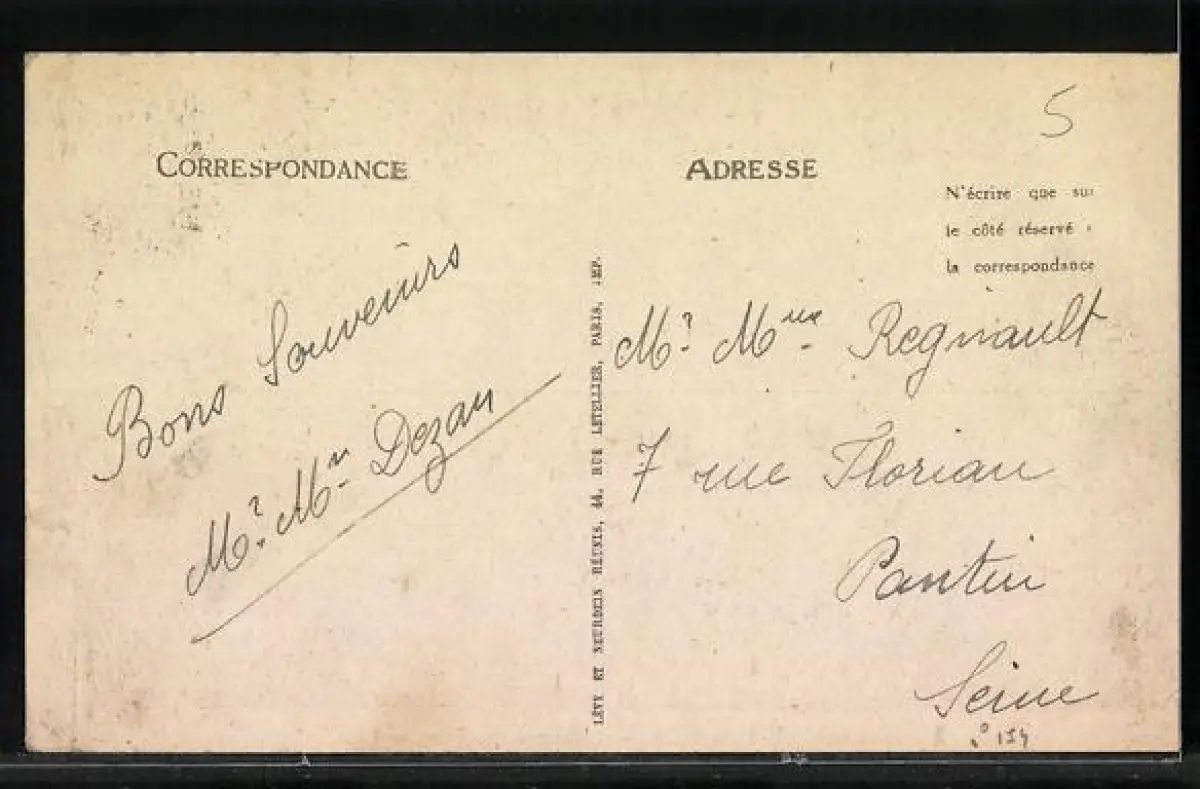 CORRESPONDANCE
Bons Souvenirs
Mr. Mm Dezan
LÉVY ET NEURDEIN RÉUNIS, 44, RUE LETELLIER, PARIS, IMP.
5
ADRESSE
N'écrire que sur
le côté réservé à
la correspondance
Mr. Mme Regnault
7 rue Florian
Pantin
Seine
154